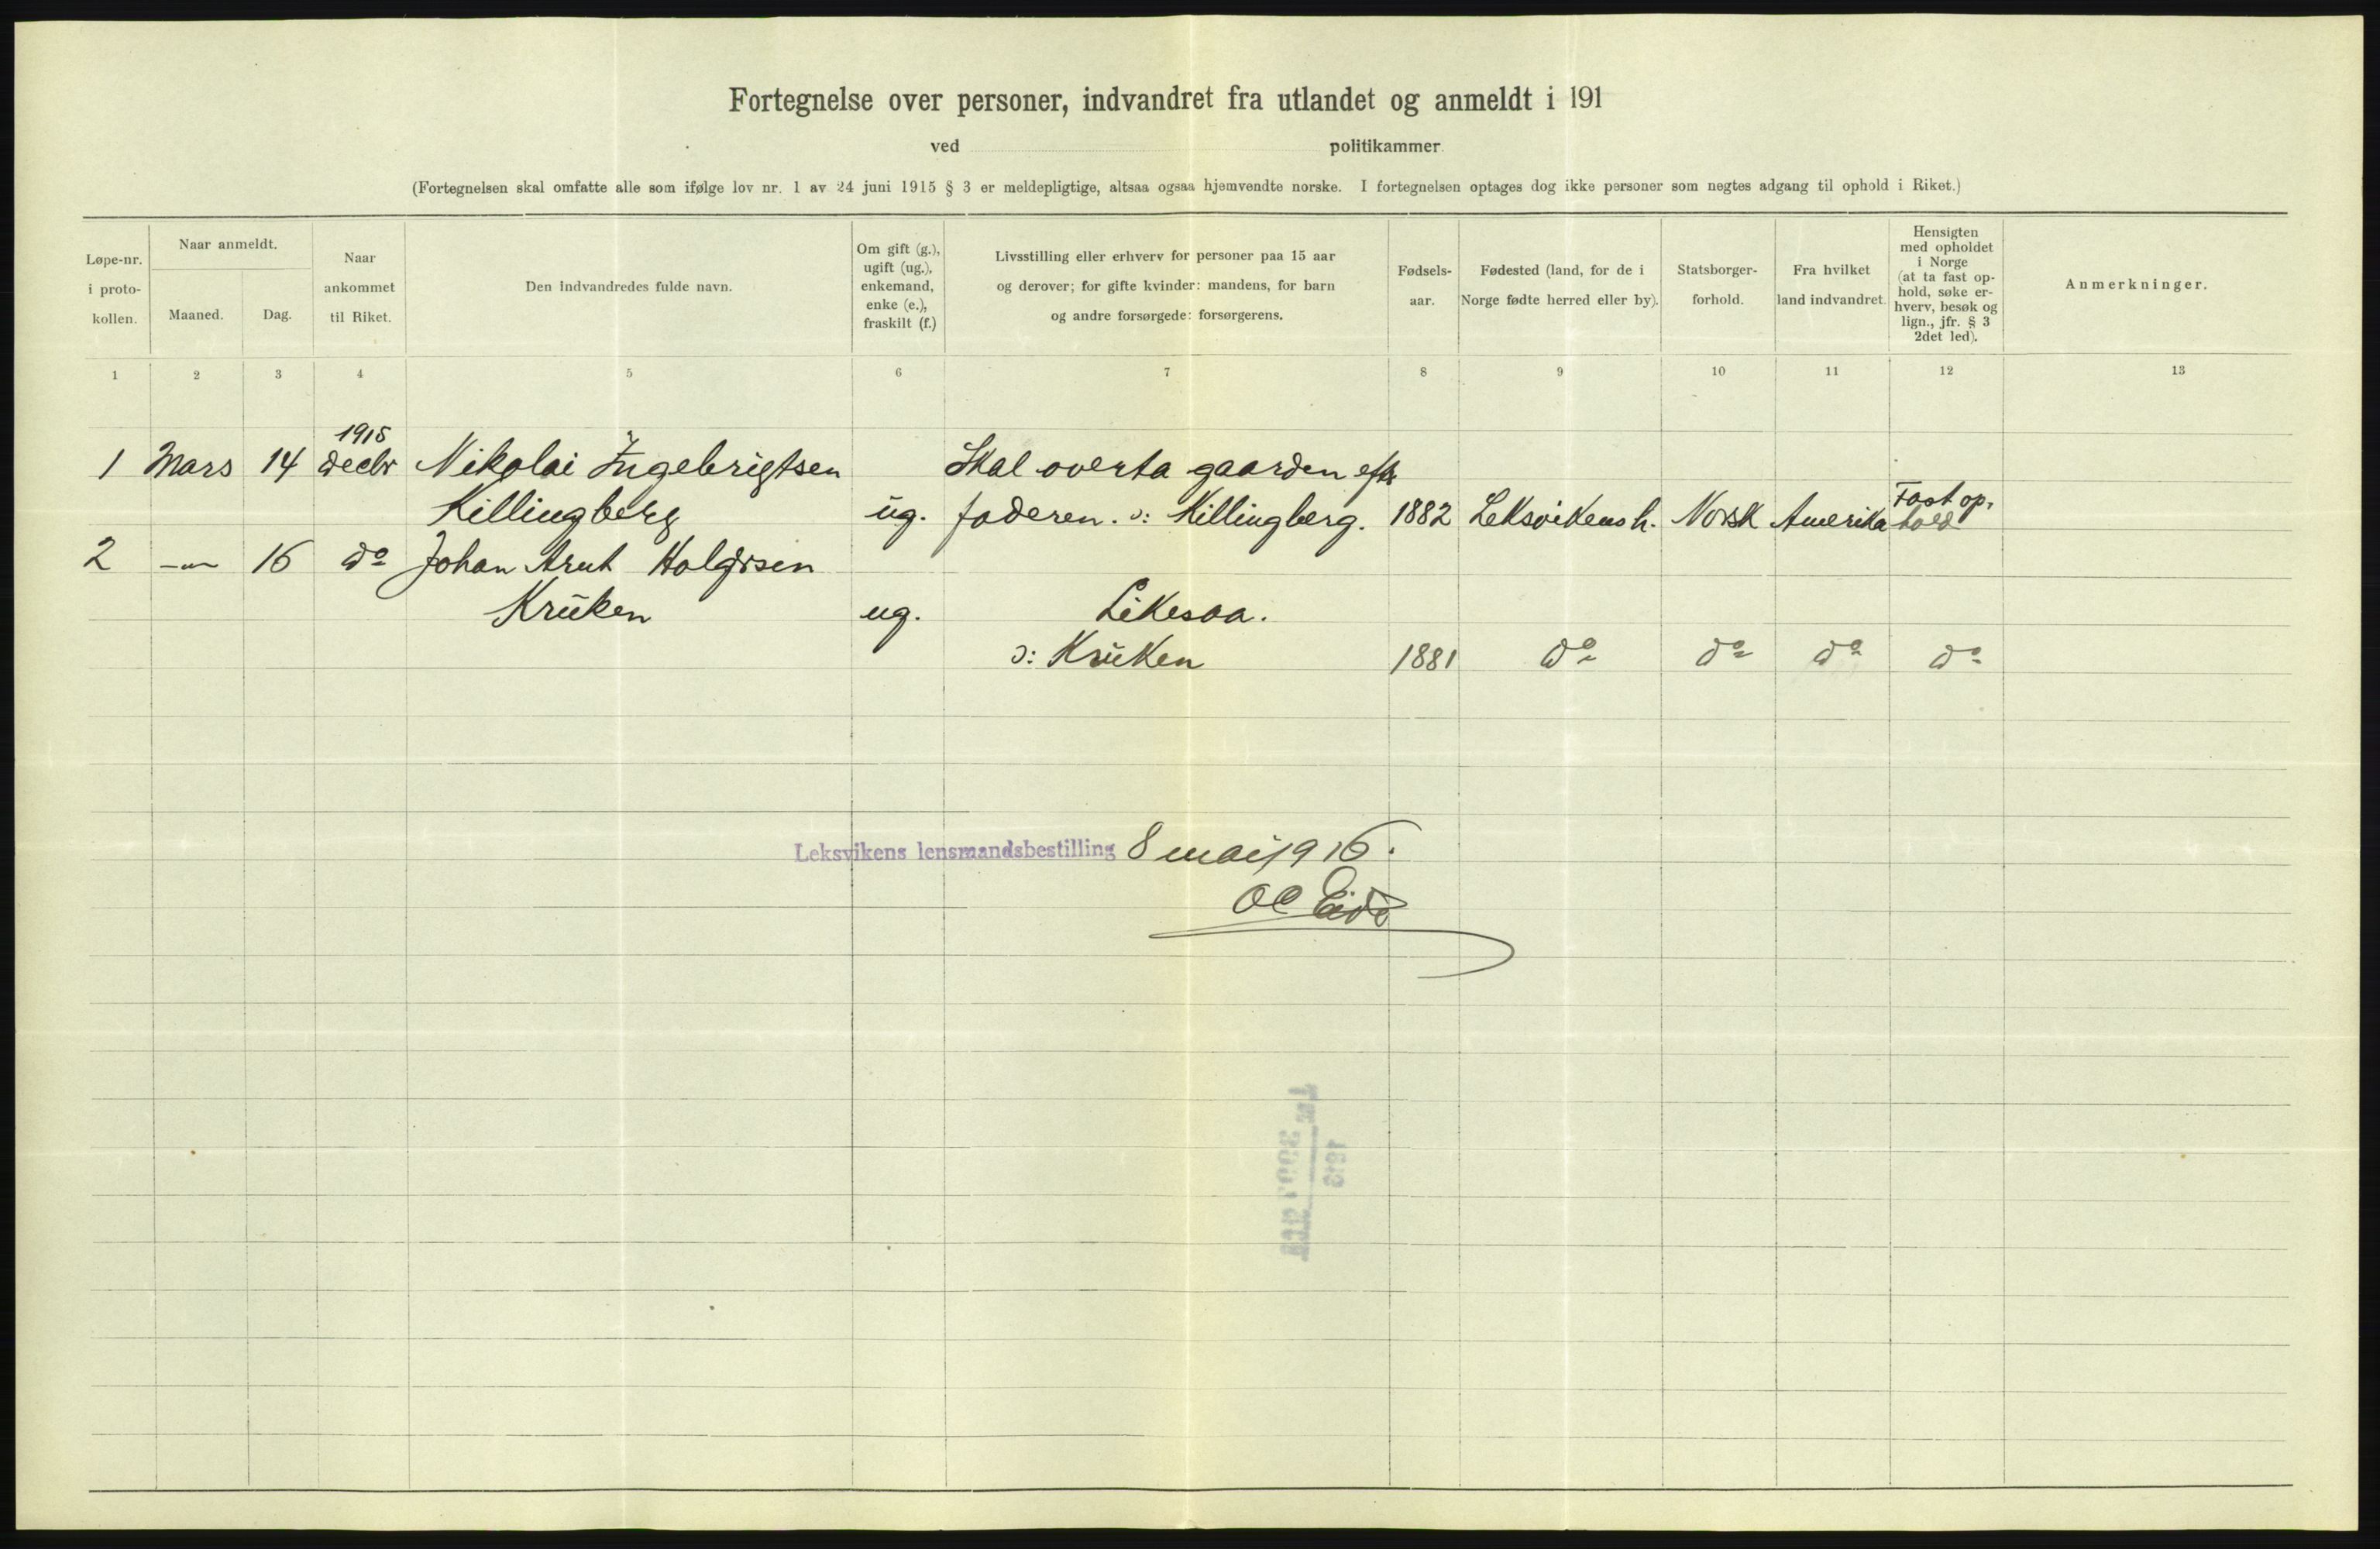 Fortegnelse over personer, indvandret fra utlandet og anmeldt i 191
ved politikammer
(Fortegnelsen skal omfatte alle som ifølge lov nr. 1 av 24 juni 1915 § 3 er meldepligtige, altsaa ogsaa hjemvendte norske. I fortegnelsen optages dog ikke personer som negtes adgang til ophold i Riket.)
Løpe-nr.
i proto-
kollen.
Naar anmeldt.
Maaned.
Dag.
Naar
ankommet
til Riket.
Den indvandredes fulde navn.
Om gift (g.),
ugift (ug.),
enkemand,
enke (e.),
fraskilt (f.)
Livsstilling eller erhverv for personer paa 15 aar
og derover; for gifte kvinder: mandens, for barn
og andre forsørgede: forsørgerens.
Fødsels-
aar.
Fødested (land, for de i
Norge fødte herred eller by).
Statsborger-
forhold.
Fra hvilket
land indvandret.
Hensigten
med opholdet
i Norge
(at ta fast op-
hold, søke er-
hverv, besøk og
lign., jfr. § 3
2det led).
Anmerkninger.
1 2 3 4 5 6 7 8 9 10 11 12 13
1915
1 Mars 14 decbr Nikolai Ingebrigtsen Skal overta gaarden eftr
Killingberg ug. faderen. ɔ: Killingberg. 1882 Leksvikens h. Norsk Amerika Fast op-
hold
2 -"- 16 do Johan Arnt Holgrsen
Krüken ug. Likesaa.
ɔ: Krüken 1881 do do do do
Leksvikens lensmandsbestilling 8 mai 1916.
OC Eide
1913